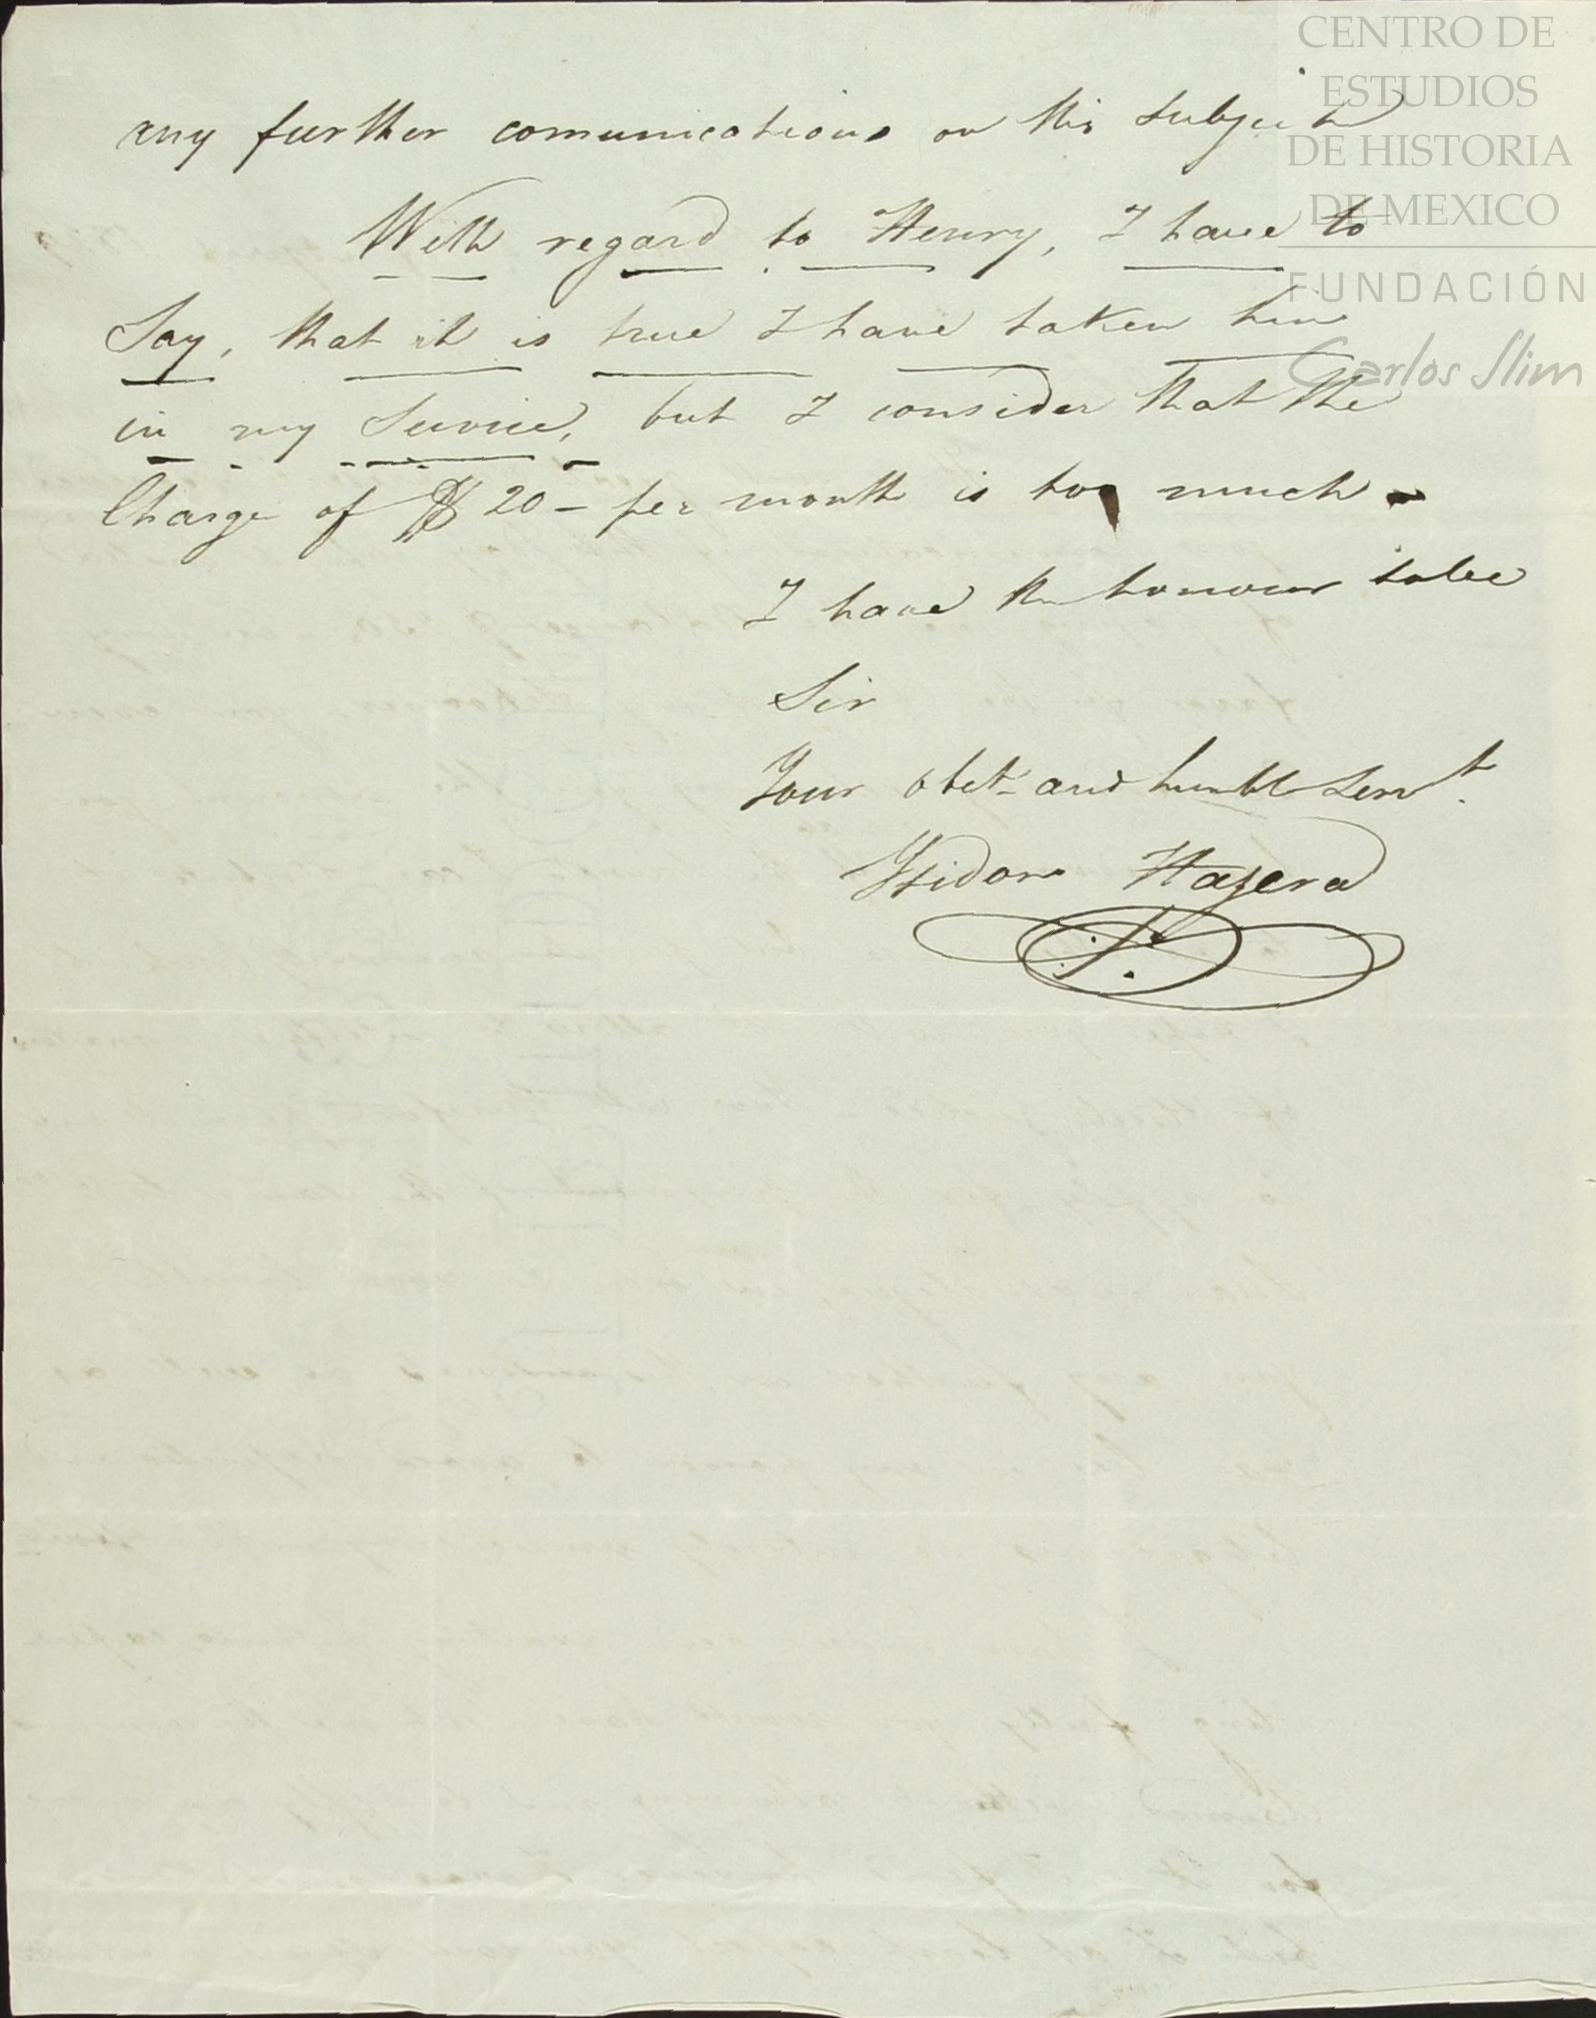 any further comunications on this subject
With regard to Henry, I have to
Say, that it is true I have taken him
in my Service, but I consider that the
Charge of $20 – per month is too much
I have the honour to be
Sir
Your obt. and humble Servt.
Ysidoro Hazera
CENTRO DE
ESTUDIOS
DE HISTORIA
DE MEXICO
FUNDACIÓN
Carlos Slim